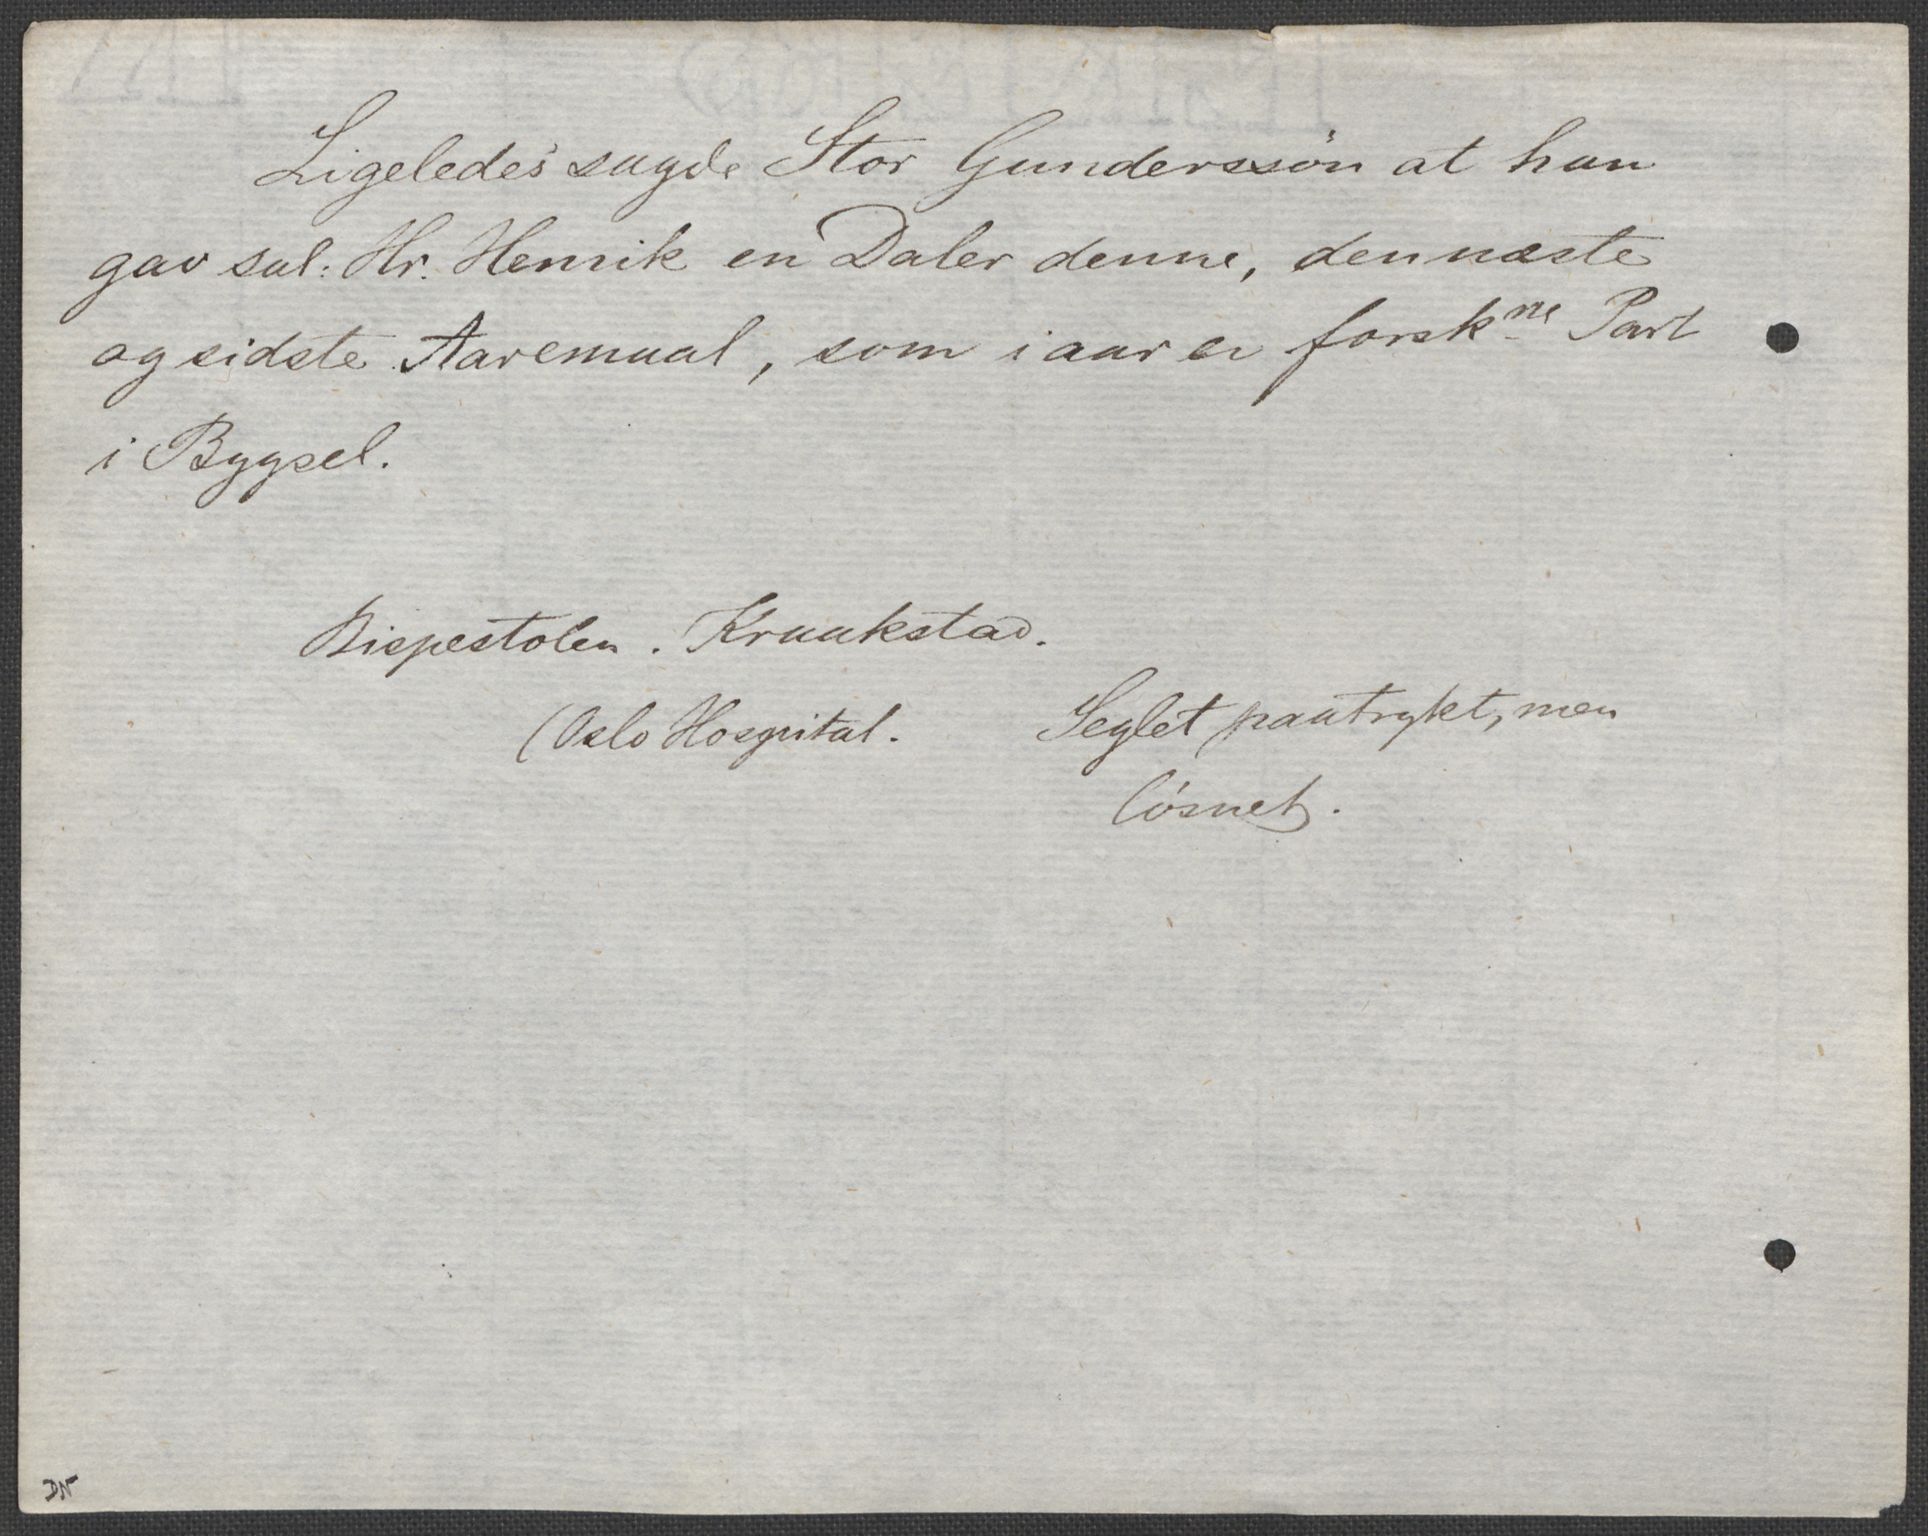 Ligeledes sagde Stor Gunderssön at han
gav sal: Hr. Henrik en Daler denne, den næste
og sidste Aaremaal, som i aar er forskne Part
i Bygsel.
Bispestolen. Kraakstad.
(Oslo Hospital. Seglet paatrykt, men
lösnet.
DN